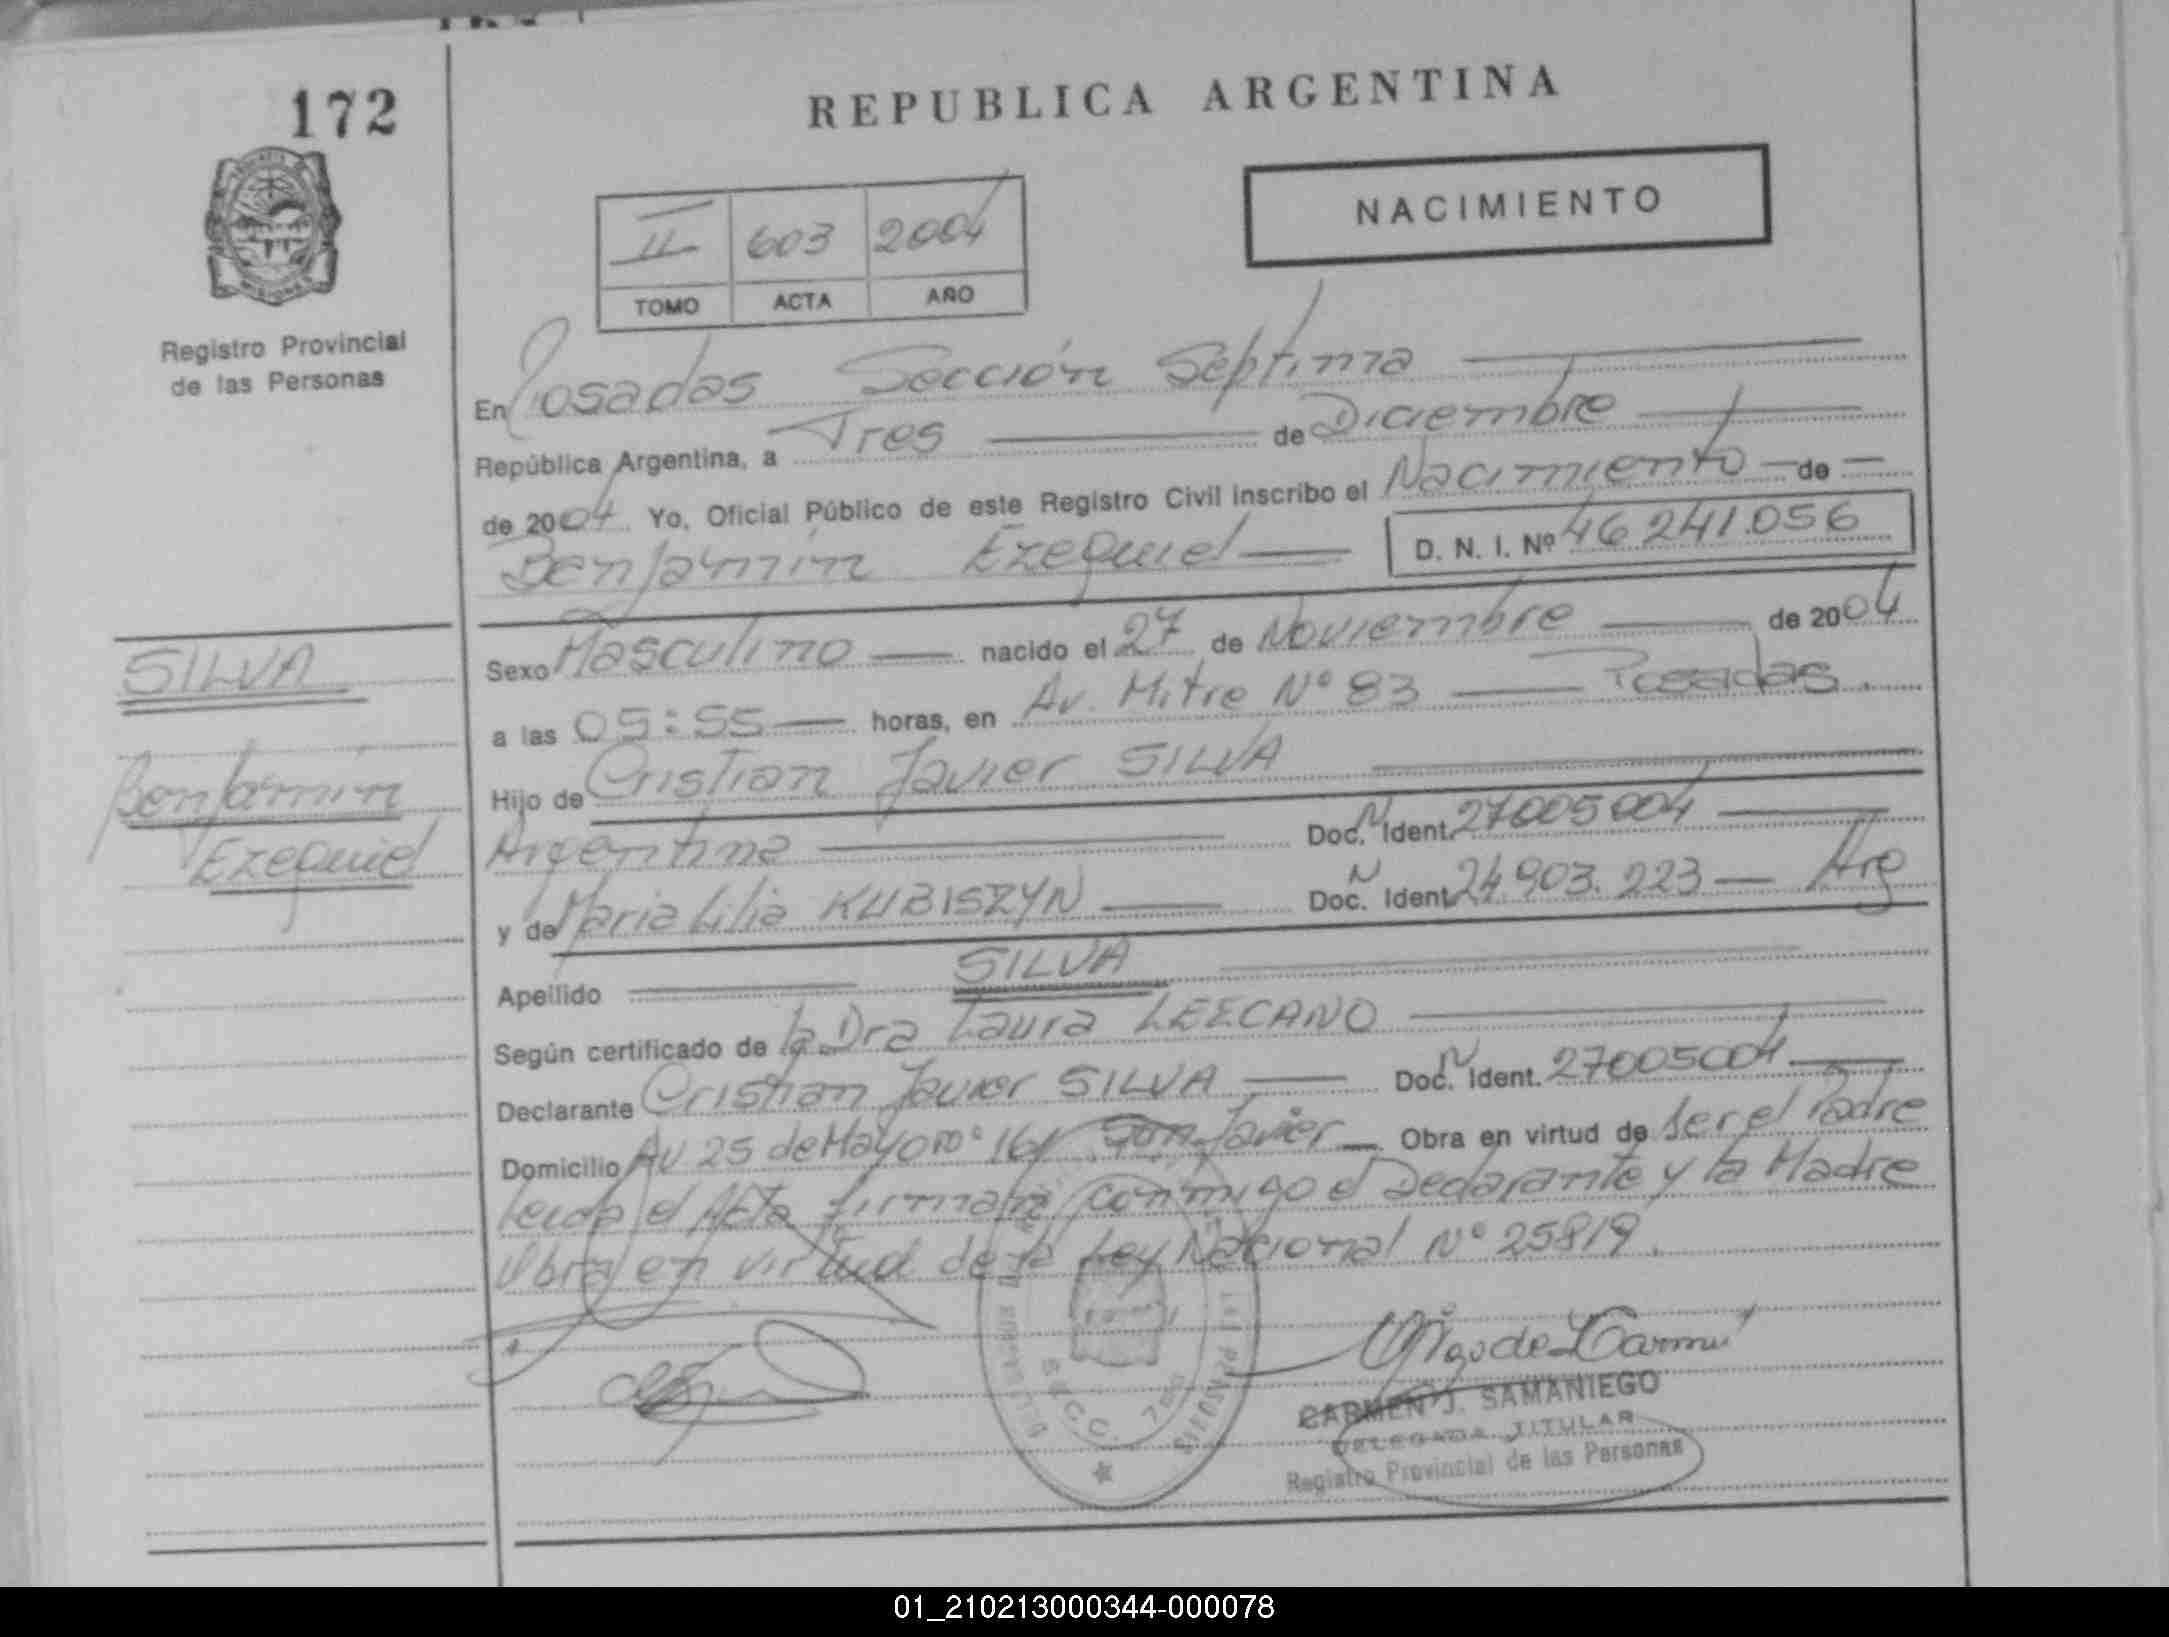 172
REPUBLICA ARGENTINA
NACIMIENTO
II 603 2004
TOMO ACTA AÑO
MISIONES
Registro Provincial
de las Personas
En Posadas Sección Septima
República Argentina, a Tres de Diciembre
de 2004. Yo, Oficial Público de este Registro Civil inscribo el Nacimiento de
Benjamin Ezequiel D. N. I. Nº 46241.056
SILVA
Benjamin
Ezequiel
Sexo Masculino nacido el 27 de Noviembre de 2004
a las 05:55 horas, en Av. Mitre Nº 83 Posadas.
Hijo de Cristian Javier SILVA
Argentina Doc. N Ident. 27005004
y de Maria Lilia KUBISZYN Doc. N Ident. 24.903.223 Arg
Apellido SILVA
Según certificado de la Dra Laura LEECANO
Declarante Cristian Javier SILVA Doc. N Ident. 27005004
Domicilio Av 25 de Mayo nº 161 San Javier Obra en virtud de ser el Padre
leida el Acta firman conmigo el Declarante y la Madre
Obra en virtud de la Ley Nacional Nº 25819.
CARMEN J. SAMANIEGO
DELEGADA TITULAR
Registro Provincial de las Personas
01_210213000344-000078